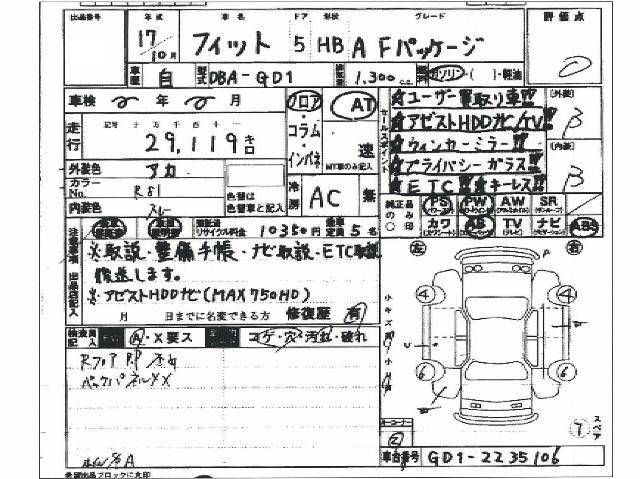 出品番号 年式 車名 ドア 型状 グレード 評価点
17 10月 フィット 5 HB A Fパッケージ 0
車歴 自 型式 DBA-GD1 排気量 1,300 c.c. ガソリン・( )・軽油
車検 年 月 フロア AT セールスポイント ★ユーザー買取り車!! [外装]
走行 29,119キロ ・コラム ・インパネ 速 MT車のみ記入 ★アゼストHDDナビ/TV!! B
★ウィンカーミラー!! [内装]
外装色 アカ ★プライバシーガラス!! B
カラーNo. R81 色替は色替車と記入 冷房 AC 無 ★ETC!!★キーレス!!
内装色 純正品のみ○印 PS PW AW SR
リサイクル料金 10380円 乗車定員 5名 カワ AB TV ナビ ABS
注意事項 出品店記入 ※取説・整備手帳・ナビ取説・ETC取説
後送します。
※アゼストHDDナビ(MAX750HD)
月 日までに名変できる方 修復歴 有
検査員記入 A・X要ス コゲ・穴・汚れ・破れ
RフロアP
バックパネルX
左 右
小キズ 小凹
4 4
6 6
スペア 7
コーナー
車台番号 GD1-2235106